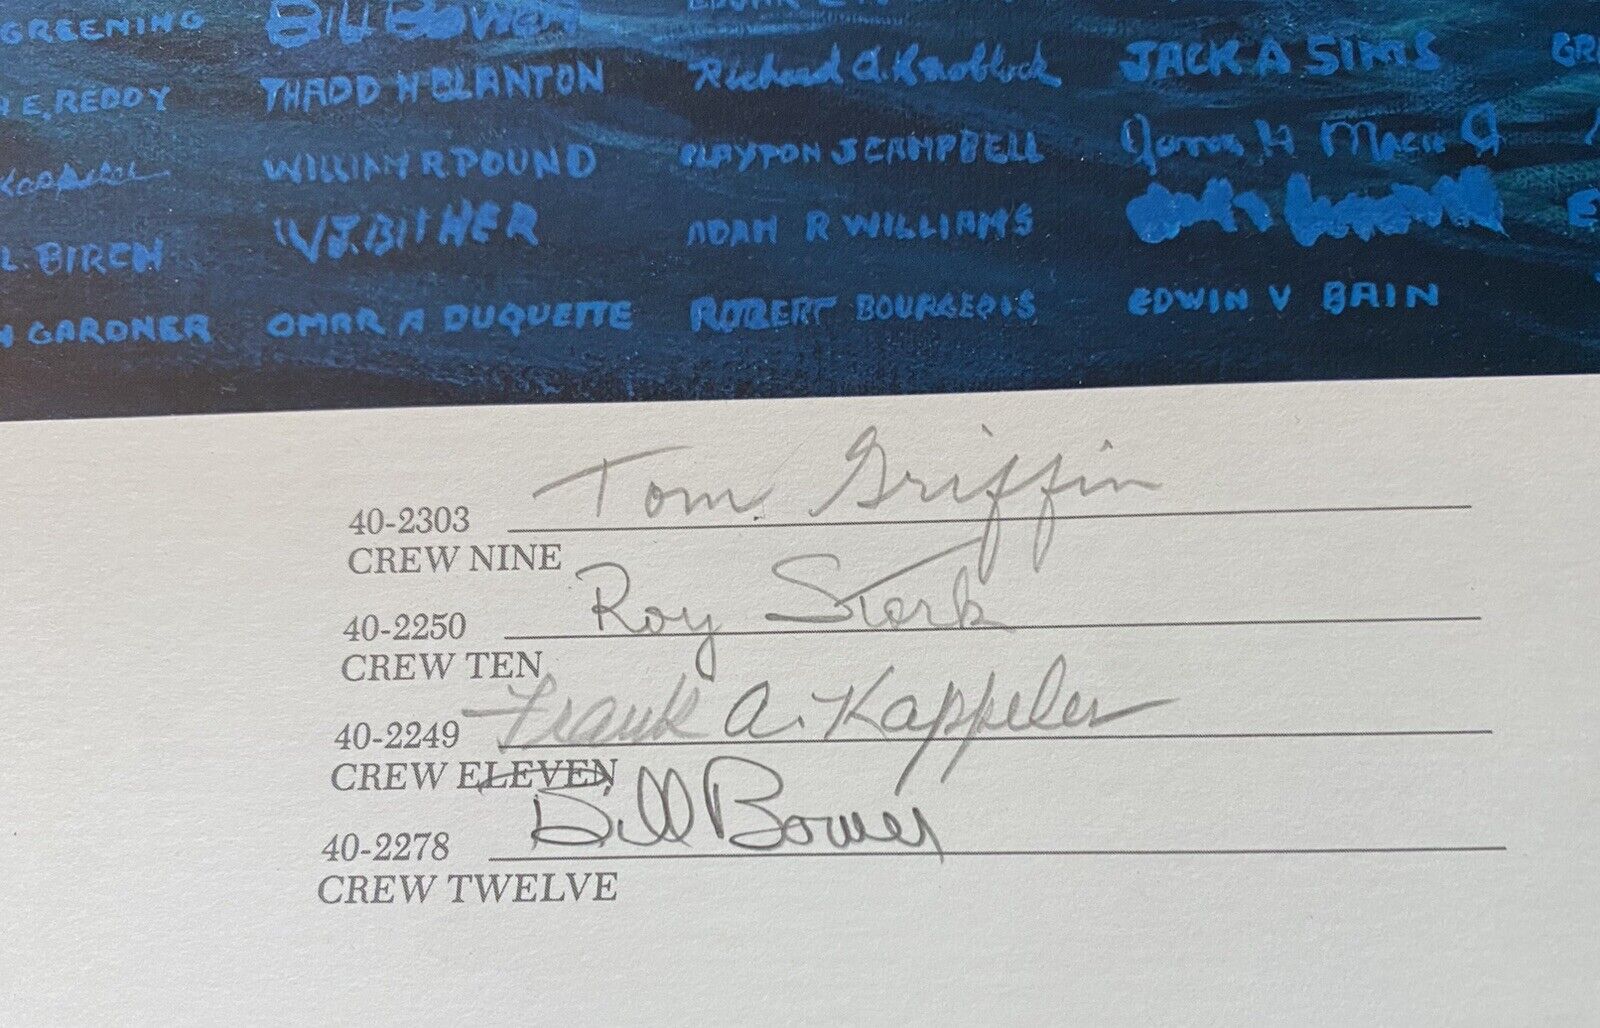 GREENING BILL BOWER
E. REDDY THADD H BLANTON Richard A. Knobloch JACK A SIMS
Kappeler WILLIAM R POUND CLAYTON J CAMPBELL
L. BIRCH W.J. BITHER ADAM R WILLIAMS
GARDNER OMAR A DUQUETTE ROBERT BOURGEOIS EDWIN V BAIN
40-2303 Tom Griffin
CREW NINE
40-2250 Roy Stork
CREW TEN
40-2249 Frank A. Kappeler
CREW ELEVEN
40-2278 Bill Bower
CREW TWELVE